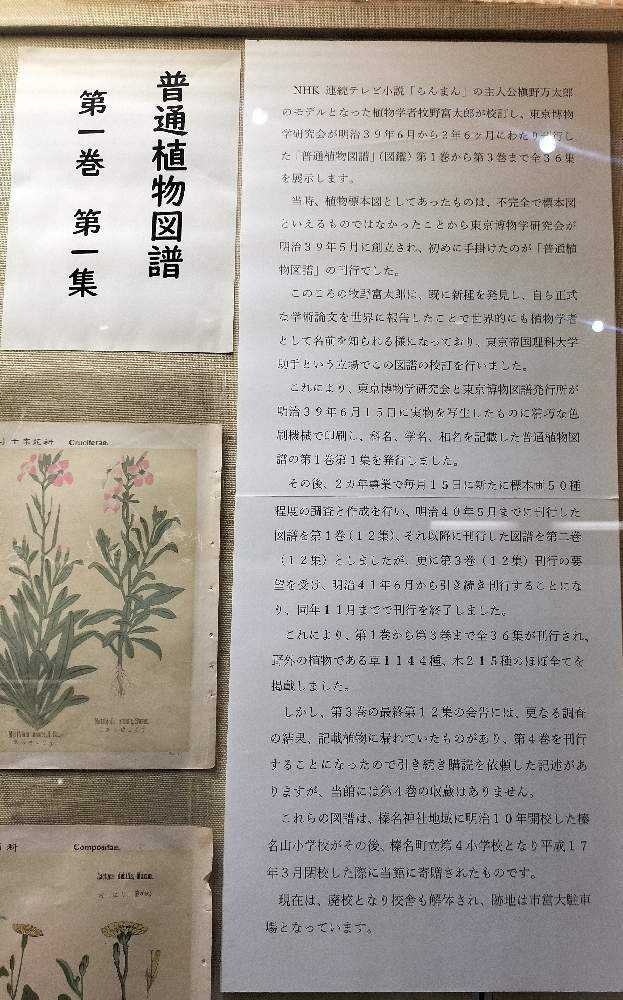 普通植物図譜
第一巻 第一集
NHK 連続テレビ小説「らんまん」の主人公槙野万太郎
のモデルとなった植物学者牧野富太郎が校訂し、東京博物
学研究会が明治39年6月から2年6ヶ月にわたり刊行し
た「普通植物図譜」(図鑑)第1巻から第3巻まで全36集
を展示します。
当時、植物標本図としてあったものは、不完全で標本図
といえるものではなかったことから東京博物学研究会が
明治39年5月に創立され、初めに手掛けたのが「普通植
物図譜」の刊行でした。
このころの牧野富太郎は、既に新種を発見し、自ら正式
な学術論文を世界に報告したことで世界的にも植物学者
として名前を知られる様になっており、東京帝国理科大学
助手という立場でこの図譜の校訂を行いました。
これにより、東京博物学研究会と東京博物図譜発行所が
明治39年6月15日に実物を写生したものに精巧な色
刷機械で印刷し、科名、学名、和名を記載した普通植物図
譜の第1巻第1集を発行しました。
その後、2カ年事業で毎月15日に新たに標本画50種
程度の調査と作成を行い、明治40年5月までに刊行した
図譜を第1巻(12集)、それ以降に刊行した図譜を第二巻
(12集)としましたが、更に第3巻(12集)刊行の要
望を受け、明治41年6月から引き続き刊行することにな
り、同年11月までで刊行を終了しました。
これにより、第1巻から第3巻まで全36集が刊行され、
野外の植物である草1144種、木215種のほぼ全てを
掲載しました。
しかし、第3巻の最終第12集の会告には、更なる調査
の結果、記載植物に漏れていたものがあり、第4巻を刊行
することになったので引き続き購読を依頼した記述があ
りますが、当館には第4巻の収蔵はありません。
これらの図譜は、榛名神社地域に明治10年開校した榛
名山小学校がその後、榛名町立第4小学校となり平成17
年3月閉校した際に当館に寄贈されたものです。
現在は、廃校となり校舎も解体され、跡地は市営大駐車
場となっています。
Cruciferae.
Compositae.